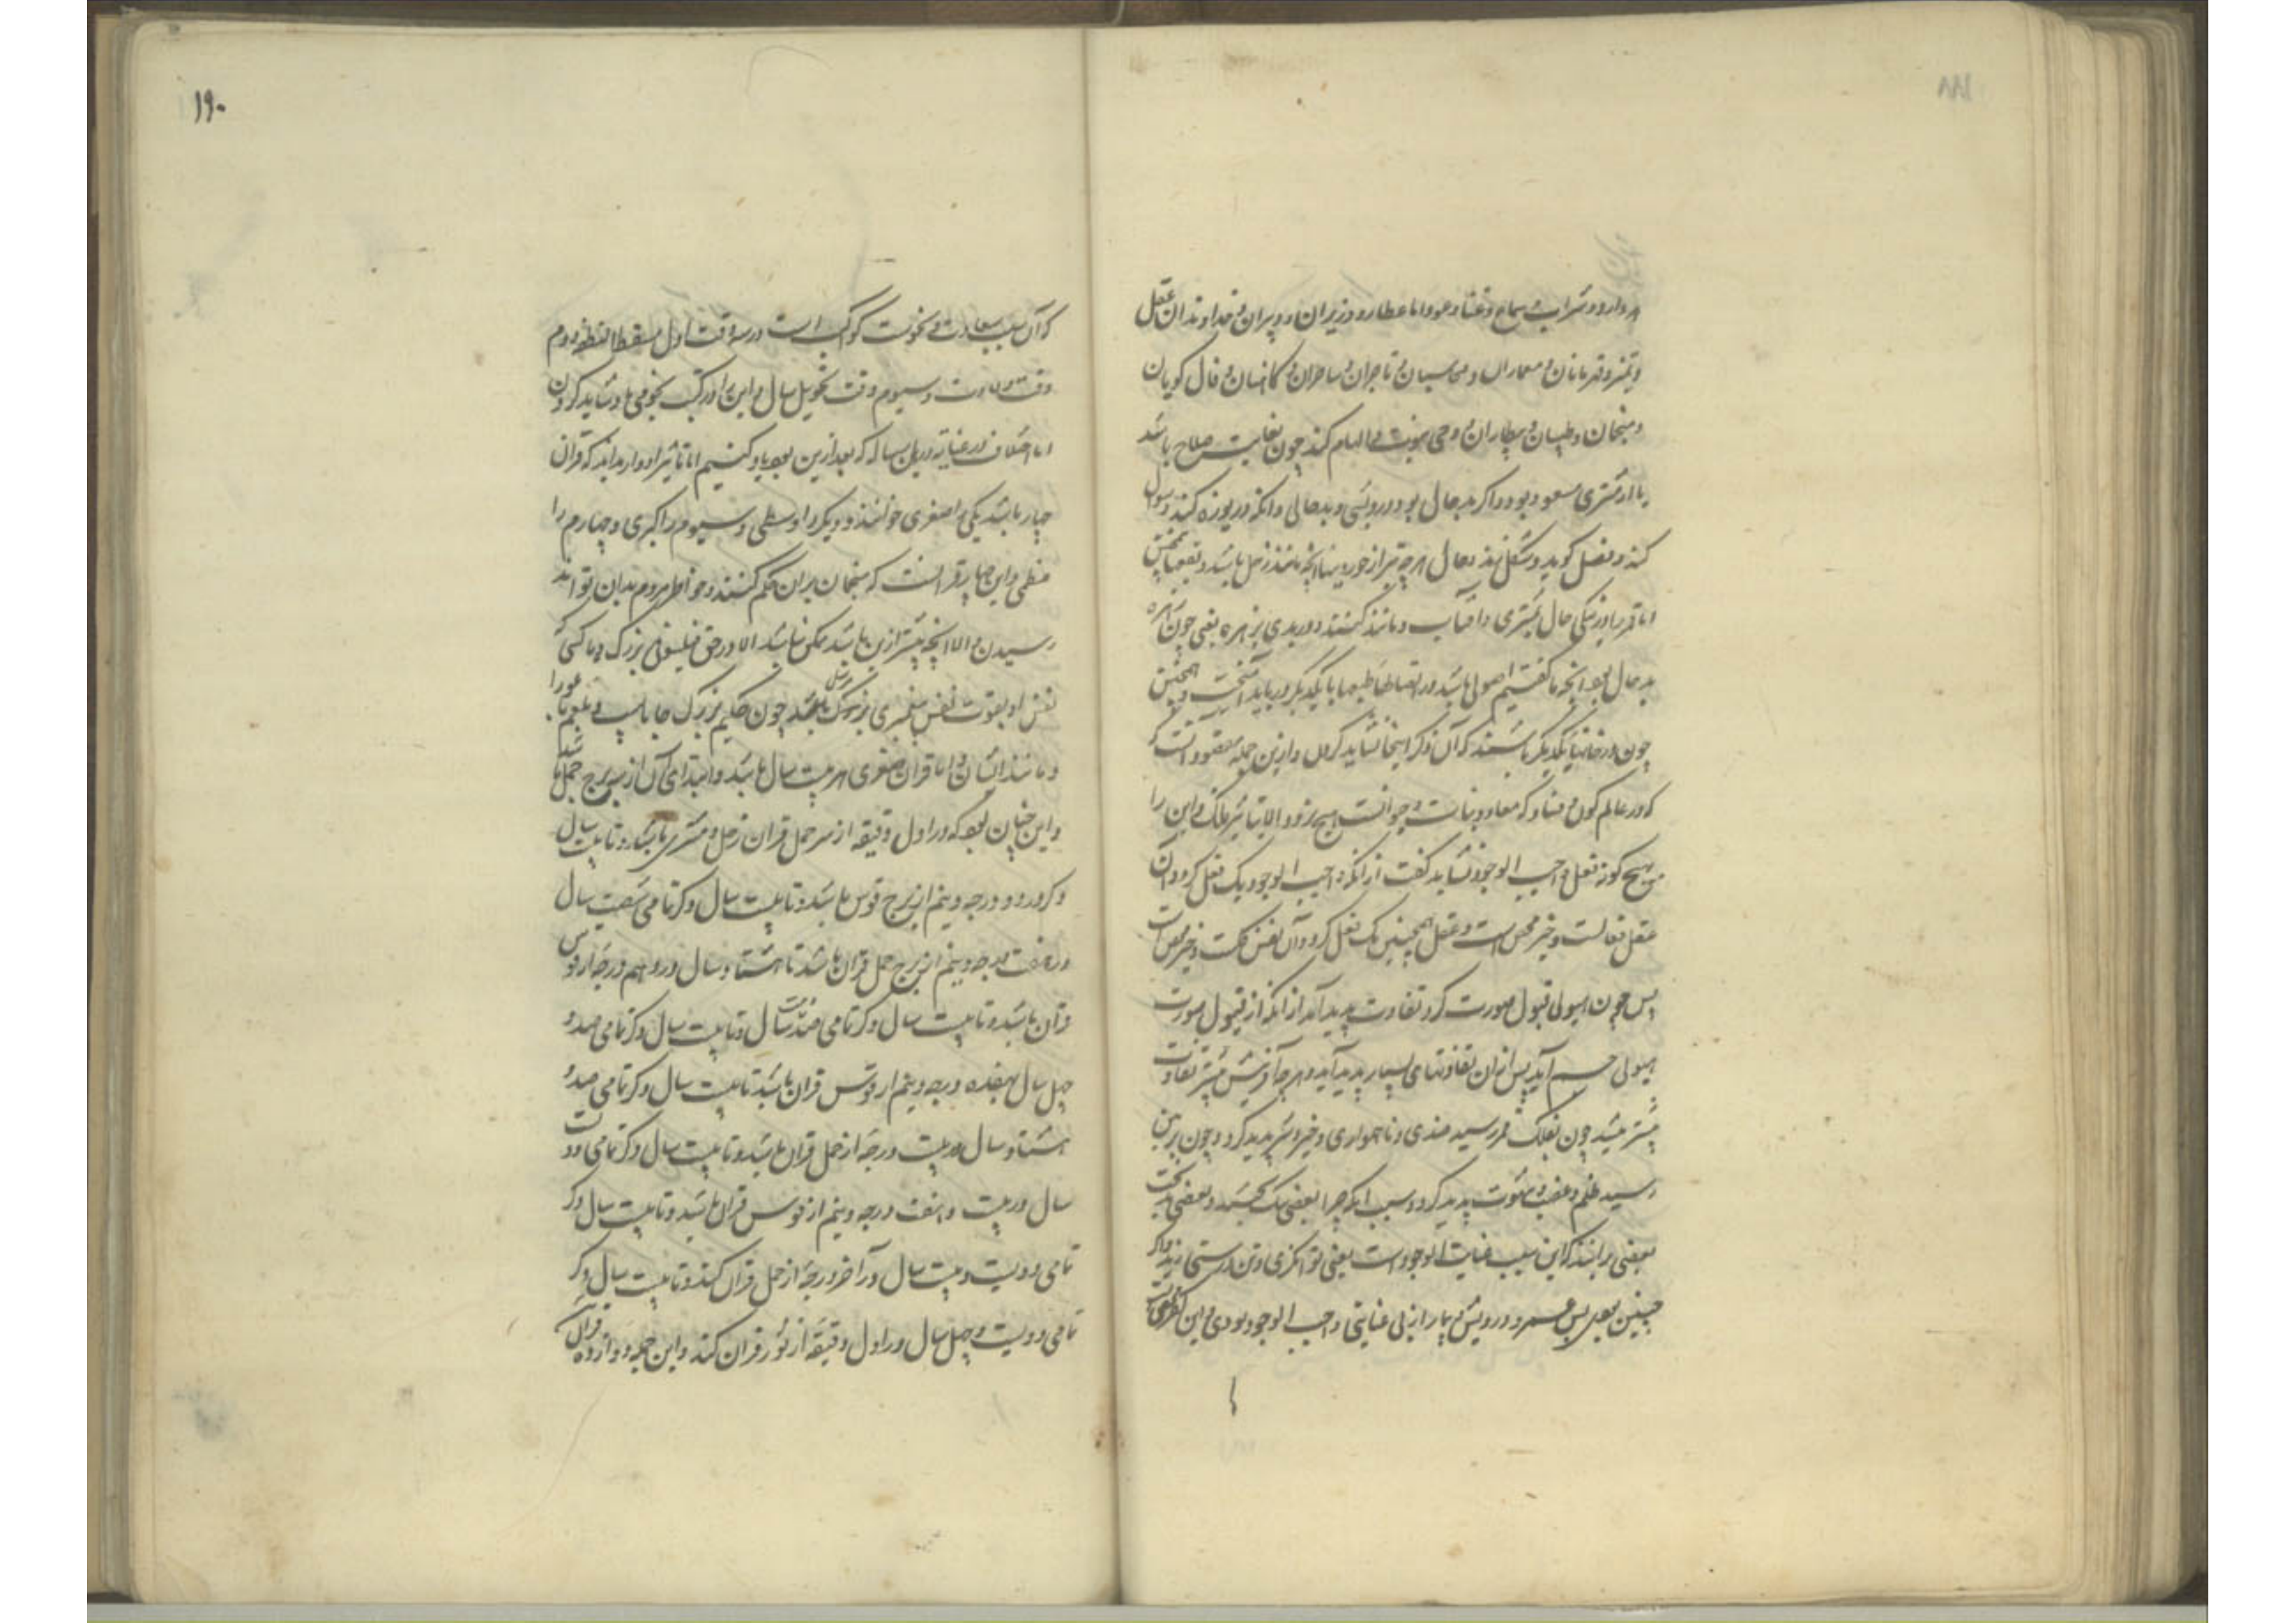 مر دارو و شراب سماع و غنا و عود اما عطارد وزیران و دبیران و خداوندان عقل
و تمیز و قهرمانان و معماران و محاسبان و تاجران و ساحران و کاهنان و فال گویان
و منجمان و طبیبان و بیطاران و وحی نبوت و الهام کند چون بغایت صلاح باشد
یا از مشتری مسعود بود و اگر بد حال بود درویشی و بدحالی و آنکه دریوزه کند و سوال
کند و فضل گوید و شکل نهد حال هرچه بتر از خود بیند آنچه مانند زحل باشد و بعضها همچنین
اما قمر را در نیکی حال بمشتری و آفتاب و مانند کنند و در بدی بزهره یعنی چون زهره
بد حال بود آنچه ما گفتیم اصولی باشد در اتصالها طبعها با یکدیگر درباید آمیخت و همچنین
چون در خانهای یکدیگر باشند که آن ذکر اینجا نشاید کردن و ازین جمله مقصود آنست که
که در عالم کون و فساد که معادن و نبات و حیوانست هیچ نرود الا بتاثیر فلک و این را
هیچ گونه فعل واجب الوجود نشاید گفت از آنکه واجب الوجود یک فعل کرد و آن
عقل فعالست و خیر محض است و عقل همچنین یک فعل کرد و آن نفس کلست و خیر محض است
پس چون هیولی قبول صورت کرد تفاوت پدید آمد از آنکه از قبول صورت
هیولی جسم آید پس از آن تفاوتهای بسیار پدید آید و هرچه آفرینش بیشتر تفاوت
بیشتر میشد چون بفلک قمر رسید ضدی و ناهمواری و خیر و شر پدید کرد و چون بزمین
رسید ظلم و غضب و شهوت پدید کرد و سبب آنکه چرا بعضی نیک بختند و بعضی بدبخت
بعضی برانند که این سبب عنایت واجب الوجود است یعنی توانگری و تن درستی و اگر
چنین بودی پس عسر و درویشی و بیمار از بی عنایتی واجب الوجود بودی و این کفر محض است
۱۹۰
که آن سبب سعادت و نحوست کواکب است در سه وقت اول مسقط النطفه دوم
وقت ولادت و سیوم وقت تحویل سال و این را در کتب نجومی یاد شاید کردن
اما اختلاف در غنا در باب رساله که بعد ازین بود یاد کنیم اما تاثیر ادوار بدانند که قران
چهار باشد یکی را صغری خوانند و دیگر را وسطی و سیوم را کبری و چهارم را
عظمی و این چهار قرانست که منجمان بران حکم کنند و خواطر مردم بدان تواند
رسیدن و الا آنچه بیشتر ازین باشد ممکن نباشد الا در حق فیلسوفی بزرگ و یا کسی که
نفس او بقوت نفس پیغمبری بزرگ مرسل باشد چون حکیم بزرگ جاماسب و بلعم باعورا
و مانند ایشان و اما قران صغری هر بیست سال باشد و ابتدای آن از سر برج حمل باشد
و این چنان بود که در اول دقیقه از سر حمل قران زحل و مشتری باشد و تا بیست سال
دگر در دو درجه و نیم از برج قوس باشد و تا بیست سال دگر تمامی شصت سال
در هفت درجه و نیم از برج حمل قران باشد تا هشتاد سال در دهم درجه از قوس
قران باشد و تا بیست سال دگر تمامی صد سال و تا بیست سال دگر تمامی صد و
چهل سال بهفده درجه و نیم از قوس قران باشد تا بیست سال دگر تمامی صد و
هشتاد سال در بیست درجه از حمل قران باشد و تا بیست سال دگر تمامی دویست
سال در بیست و هفت درجه و نیم از قوس قران باشد و تا بیست سال دگر
تمامی دویست و بیست سال در آخر درجه از حمل قران کند و تا بیست سال دگر
تمامی دویست و چهل سال در اول دقیقه از ثور قران کند و این جمله دوازده قران